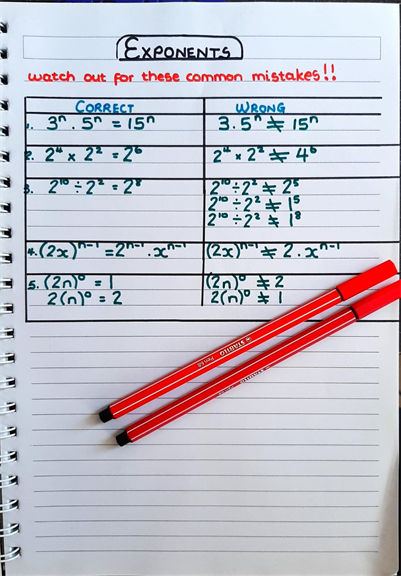 EXPONENTS
watch out for these common mistakes!!
CORRECT WRONG
1. 3ⁿ . 5ⁿ = 15ⁿ 3 . 5ⁿ ≠ 15ⁿ
2. 2⁴ × 2² = 2⁶ 2⁴ × 2² ≠ 4⁶
3. 2¹⁰ ÷ 2² = 2⁸ 2¹⁰ ÷ 2² ≠ 2⁵
2¹⁰ ÷ 2² ≠ 1⁵
2¹⁰ ÷ 2² ≠ 1⁸
4. (2x)ⁿ⁻¹ = 2ⁿ⁻¹ . xⁿ⁻¹ (2x)ⁿ⁻¹ ≠ 2 . xⁿ⁻¹
5. (2n)⁰ = 1 (2n)⁰ ≠ 2
2(n)⁰ = 2 2(n)⁰ ≠ 1
STABILO